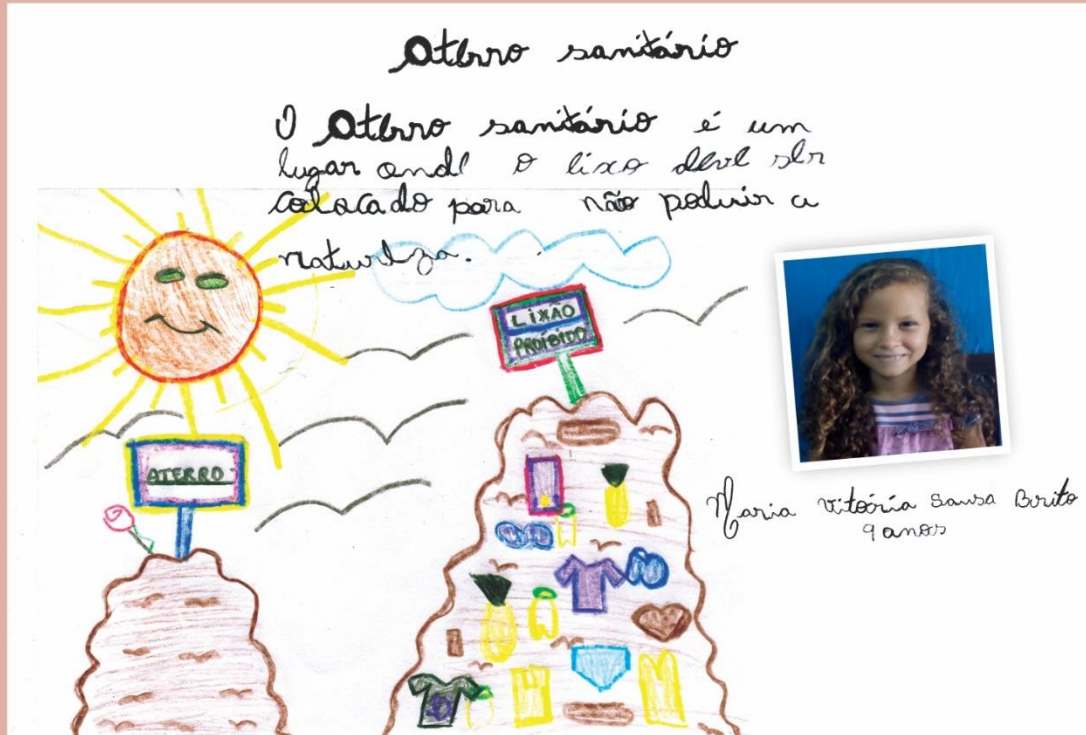 Aterro sanitário
O Aterro sanitário é um
lugar onde o lixo deve ser
colocado para não poluir a
natureza.
LIXÃO
PROIBIDO
ATERRO
Maria Vitória Sousa Brito
9 anos